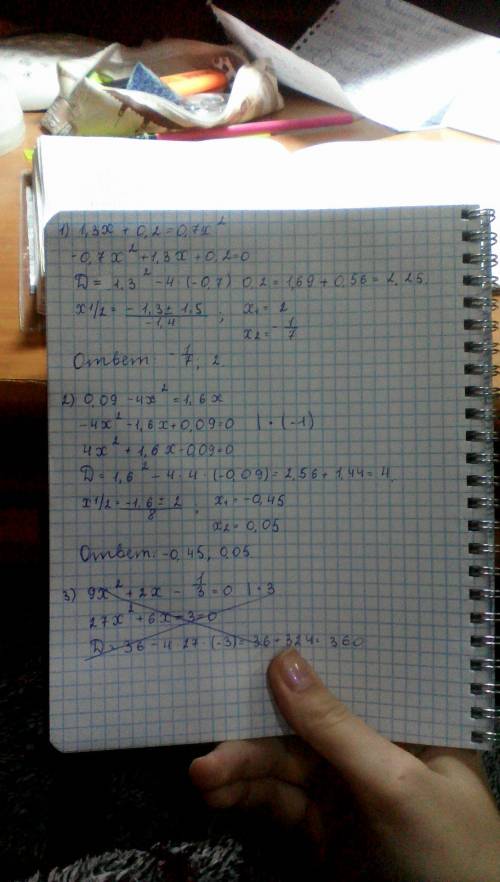 1) 1,3x + 0,2 = 0,7x²
-0,7x² + 1,3x + 0,2 = 0
D = 1,3² - 4 (-0,7) 0,2 = 1,69 + 0,56 = 2,25.
x1/2 = (-1,3 ± 1,5)/(-1,4) ; x₁ = 2
x₂ = -1/7
Ответ: -1/7; 2.
2) 0,09 - 4x² = 1,6x
-4x² - 1,6x + 0,09 = 0 | · (-1)
4x² + 1,6x - 0,09 = 0
D = 1,6² - 4 · 4 · (-0,09) = 2,56 + 1,44 = 4.
x1/2 = (-1,6 ± 2)/8 , x₁ = -0,45
x₂ = 0,05
Ответ: -0,45, 0,05
3) 9x² + 2x - 1/3 = 0 | · 3
27x² + 6x - 3 = 0
D = 36 - 4 · 27 · (-3) = 36 + 324 = 360